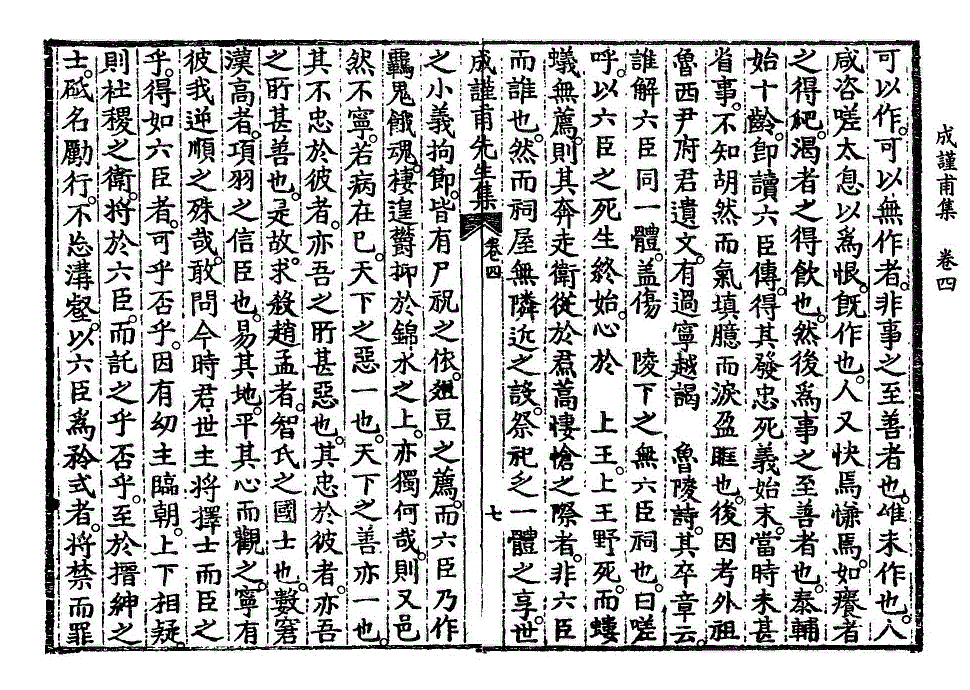 成謹甫集　卷四
可以作。可以無作者。非事之至善者也。惟未作也。人
咸咨嗟太息以爲恨。旣作也。人又快焉慊焉。如飢者
之得肥。渴者之得飮也。然後爲事之至善者也。泰輔
始十齡。卽讀六臣傳。得其發忠死義始末。當時未甚
省事。不知胡然而氣塡臆而淚盈眶也。後因考外祖
魯西尹府君遺文。有過寧越謁　魯陵詩。其卒章云。
誰解六臣同一體。盖傷　陵下之無六臣祠也。曰嗟
呼。以六臣之死生終始。心於　上王。上王野死。而螻
蟻無薦。則其奔走衛從於焄蒿悽愴之際者。非六臣
而誰也。然而祠屋無隣近之設。祭祀乏一體之享。世
成謹甫先生集　卷四　七
之小義拘節。皆有尸祝之依。俎豆之薦。而六臣乃作
羈鬼餓魂。棲遑鬱抑於錦水之上。亦獨何哉。則又邑
然不寧。若病在已。天下之惡一也。天下之善亦一也。
其不忠於彼者。亦吾之所甚惡也。其忠於彼者。亦吾
之所甚善也。是故。求殺趙孟者。智氏之國士也。數窘
漢高者。項羽之信臣也。易其地。平其心而觀之。寧有
彼我逆順之殊哉。敢問今時君世主將擇士而臣之
乎。得如六臣者。可乎否乎。因有幼主臨朝。上下相疑。
則社稷之衛。將於六臣。而託之乎否乎。至於搢紳之
士。砥名勵行。不忘溝壑。以六臣爲矜式者。將禁而罪